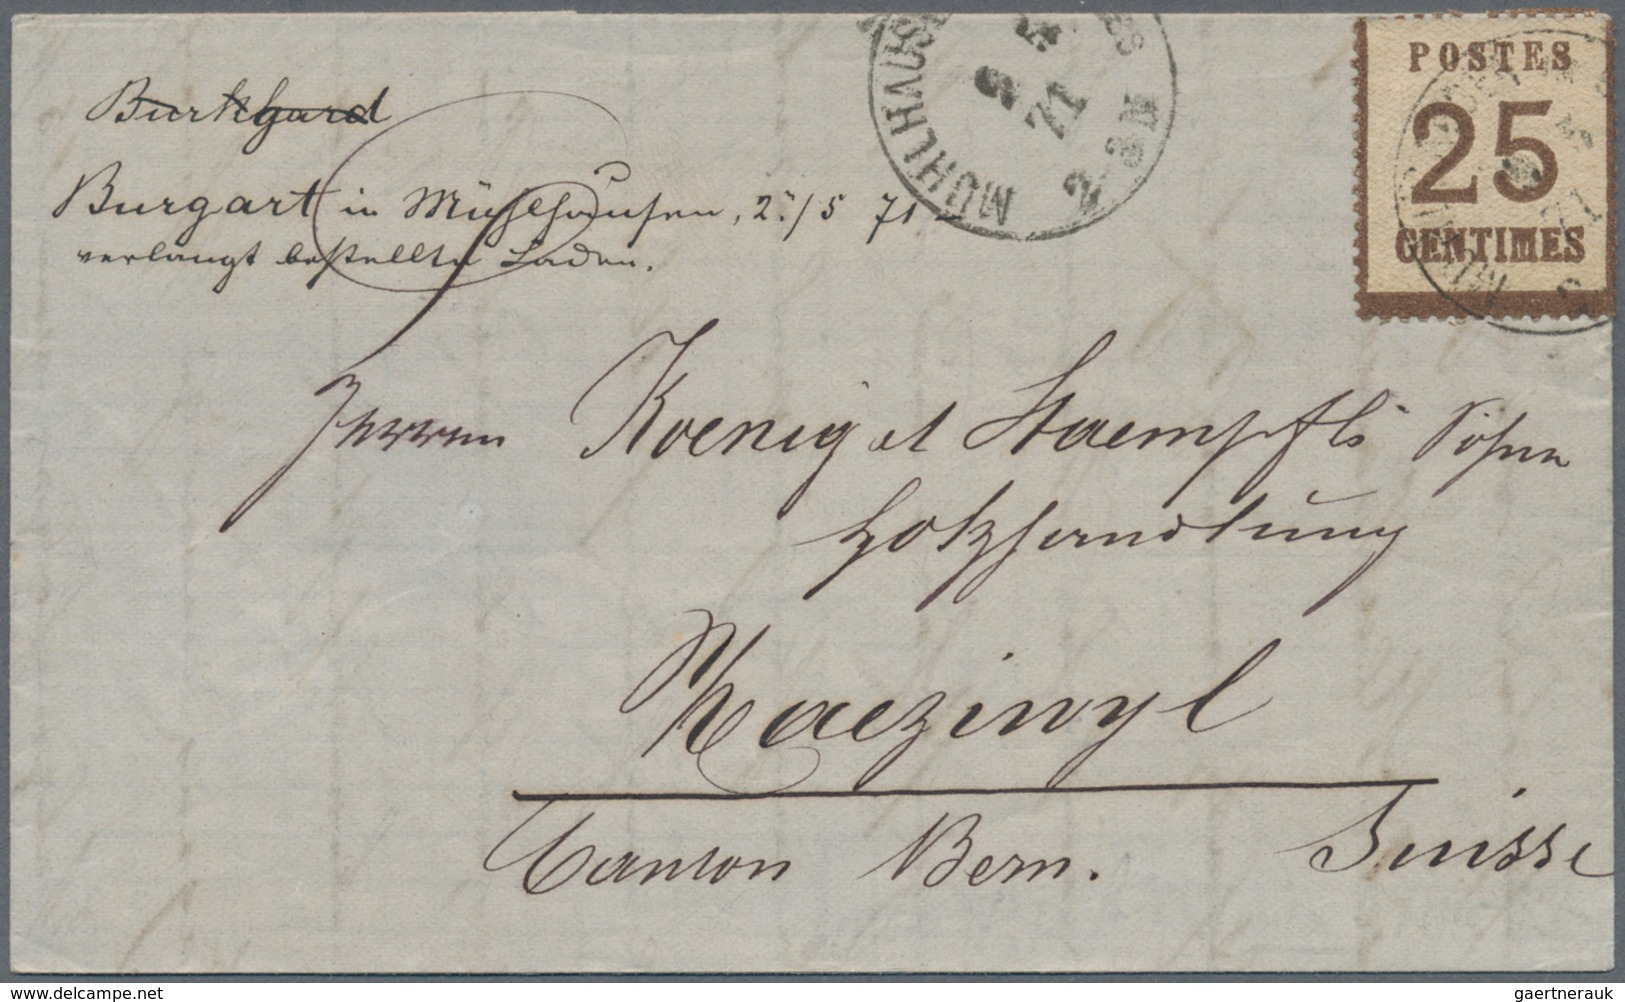 Burkhard
Burgart in Mühlhausen, 2./5 71
verlangt bestellte Laden.
MÜHLHAUSEN
2 5
71
POSTES
25
CENTIMES
71
Herren Koenig et Staempfli Söhne
Holzhandlung
Canton Bern. Suisse
www.delcampe.net
gaertnerauk